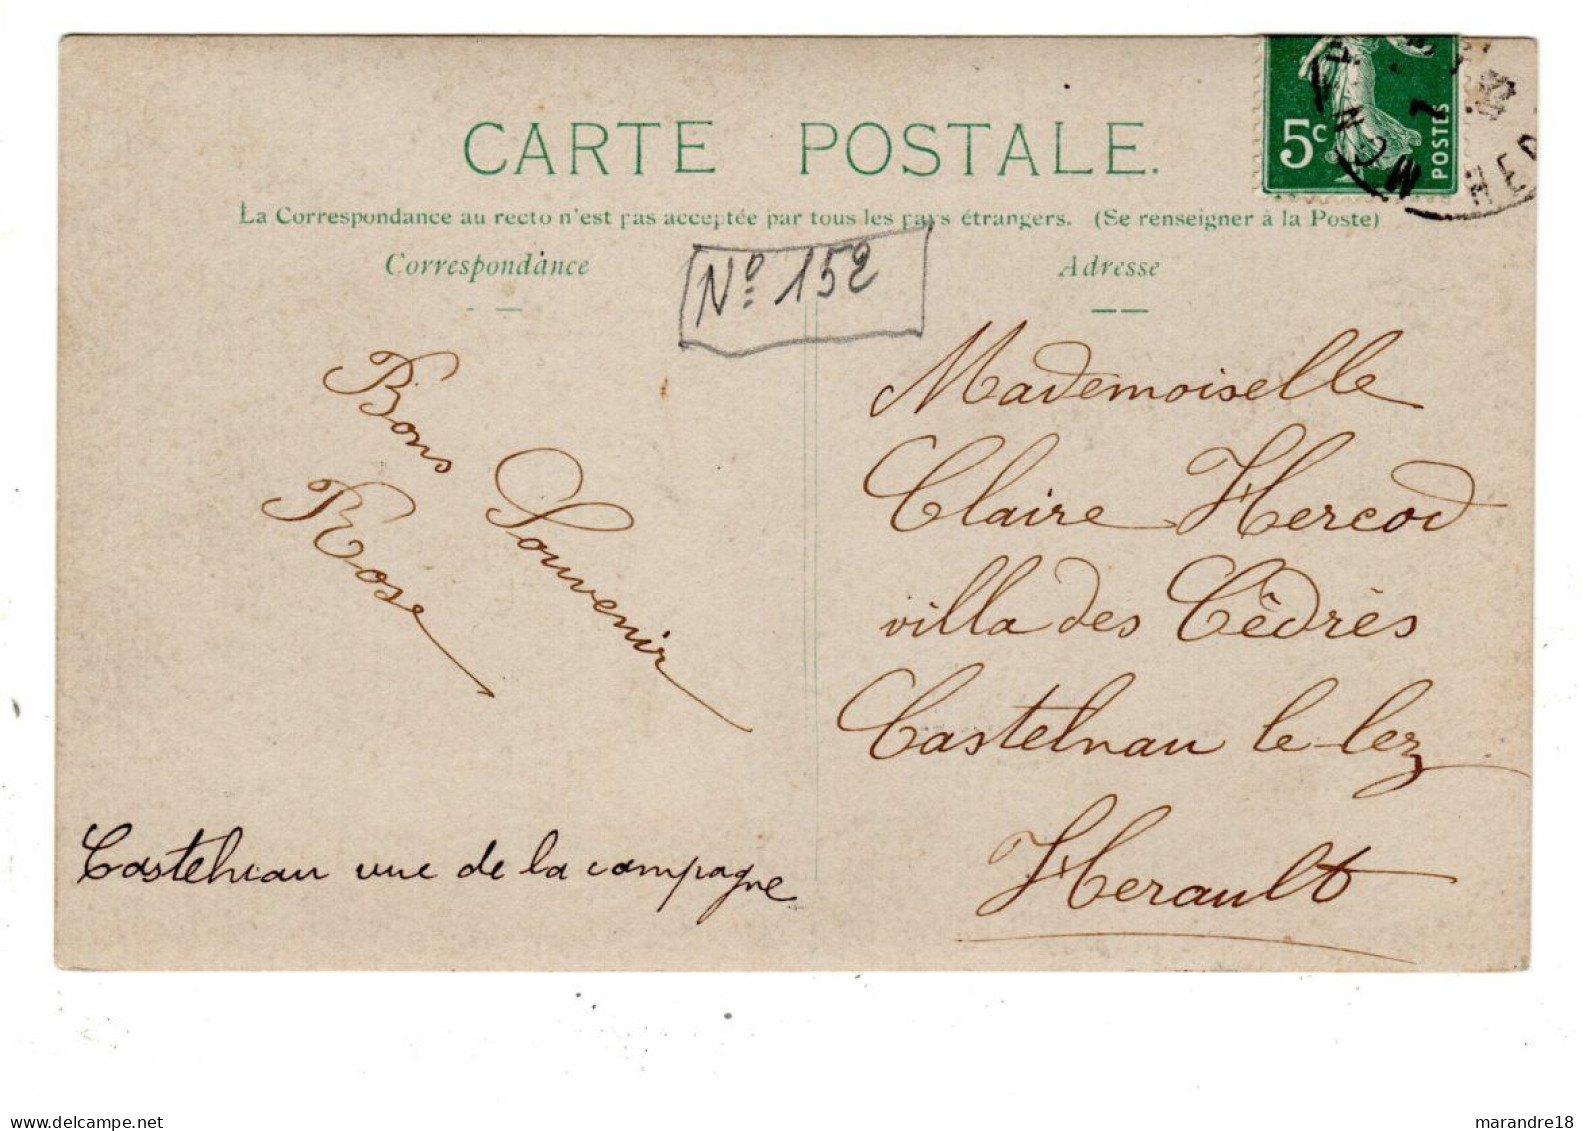 CARTE POSTALE.
La Correspondance au recto n'est pas acceptée par tous les pays étrangers. (Se renseigner à la Poste)
Correspondance
Adresse
Nº 152
5c
POSTES
Bons Souvenir
Rose
Castelnau vue de la campagne
Mademoiselle
Claire Hercod
villa des Cèdrès
Castelnau le lez
Herault
www.delcampe.net
marandre18